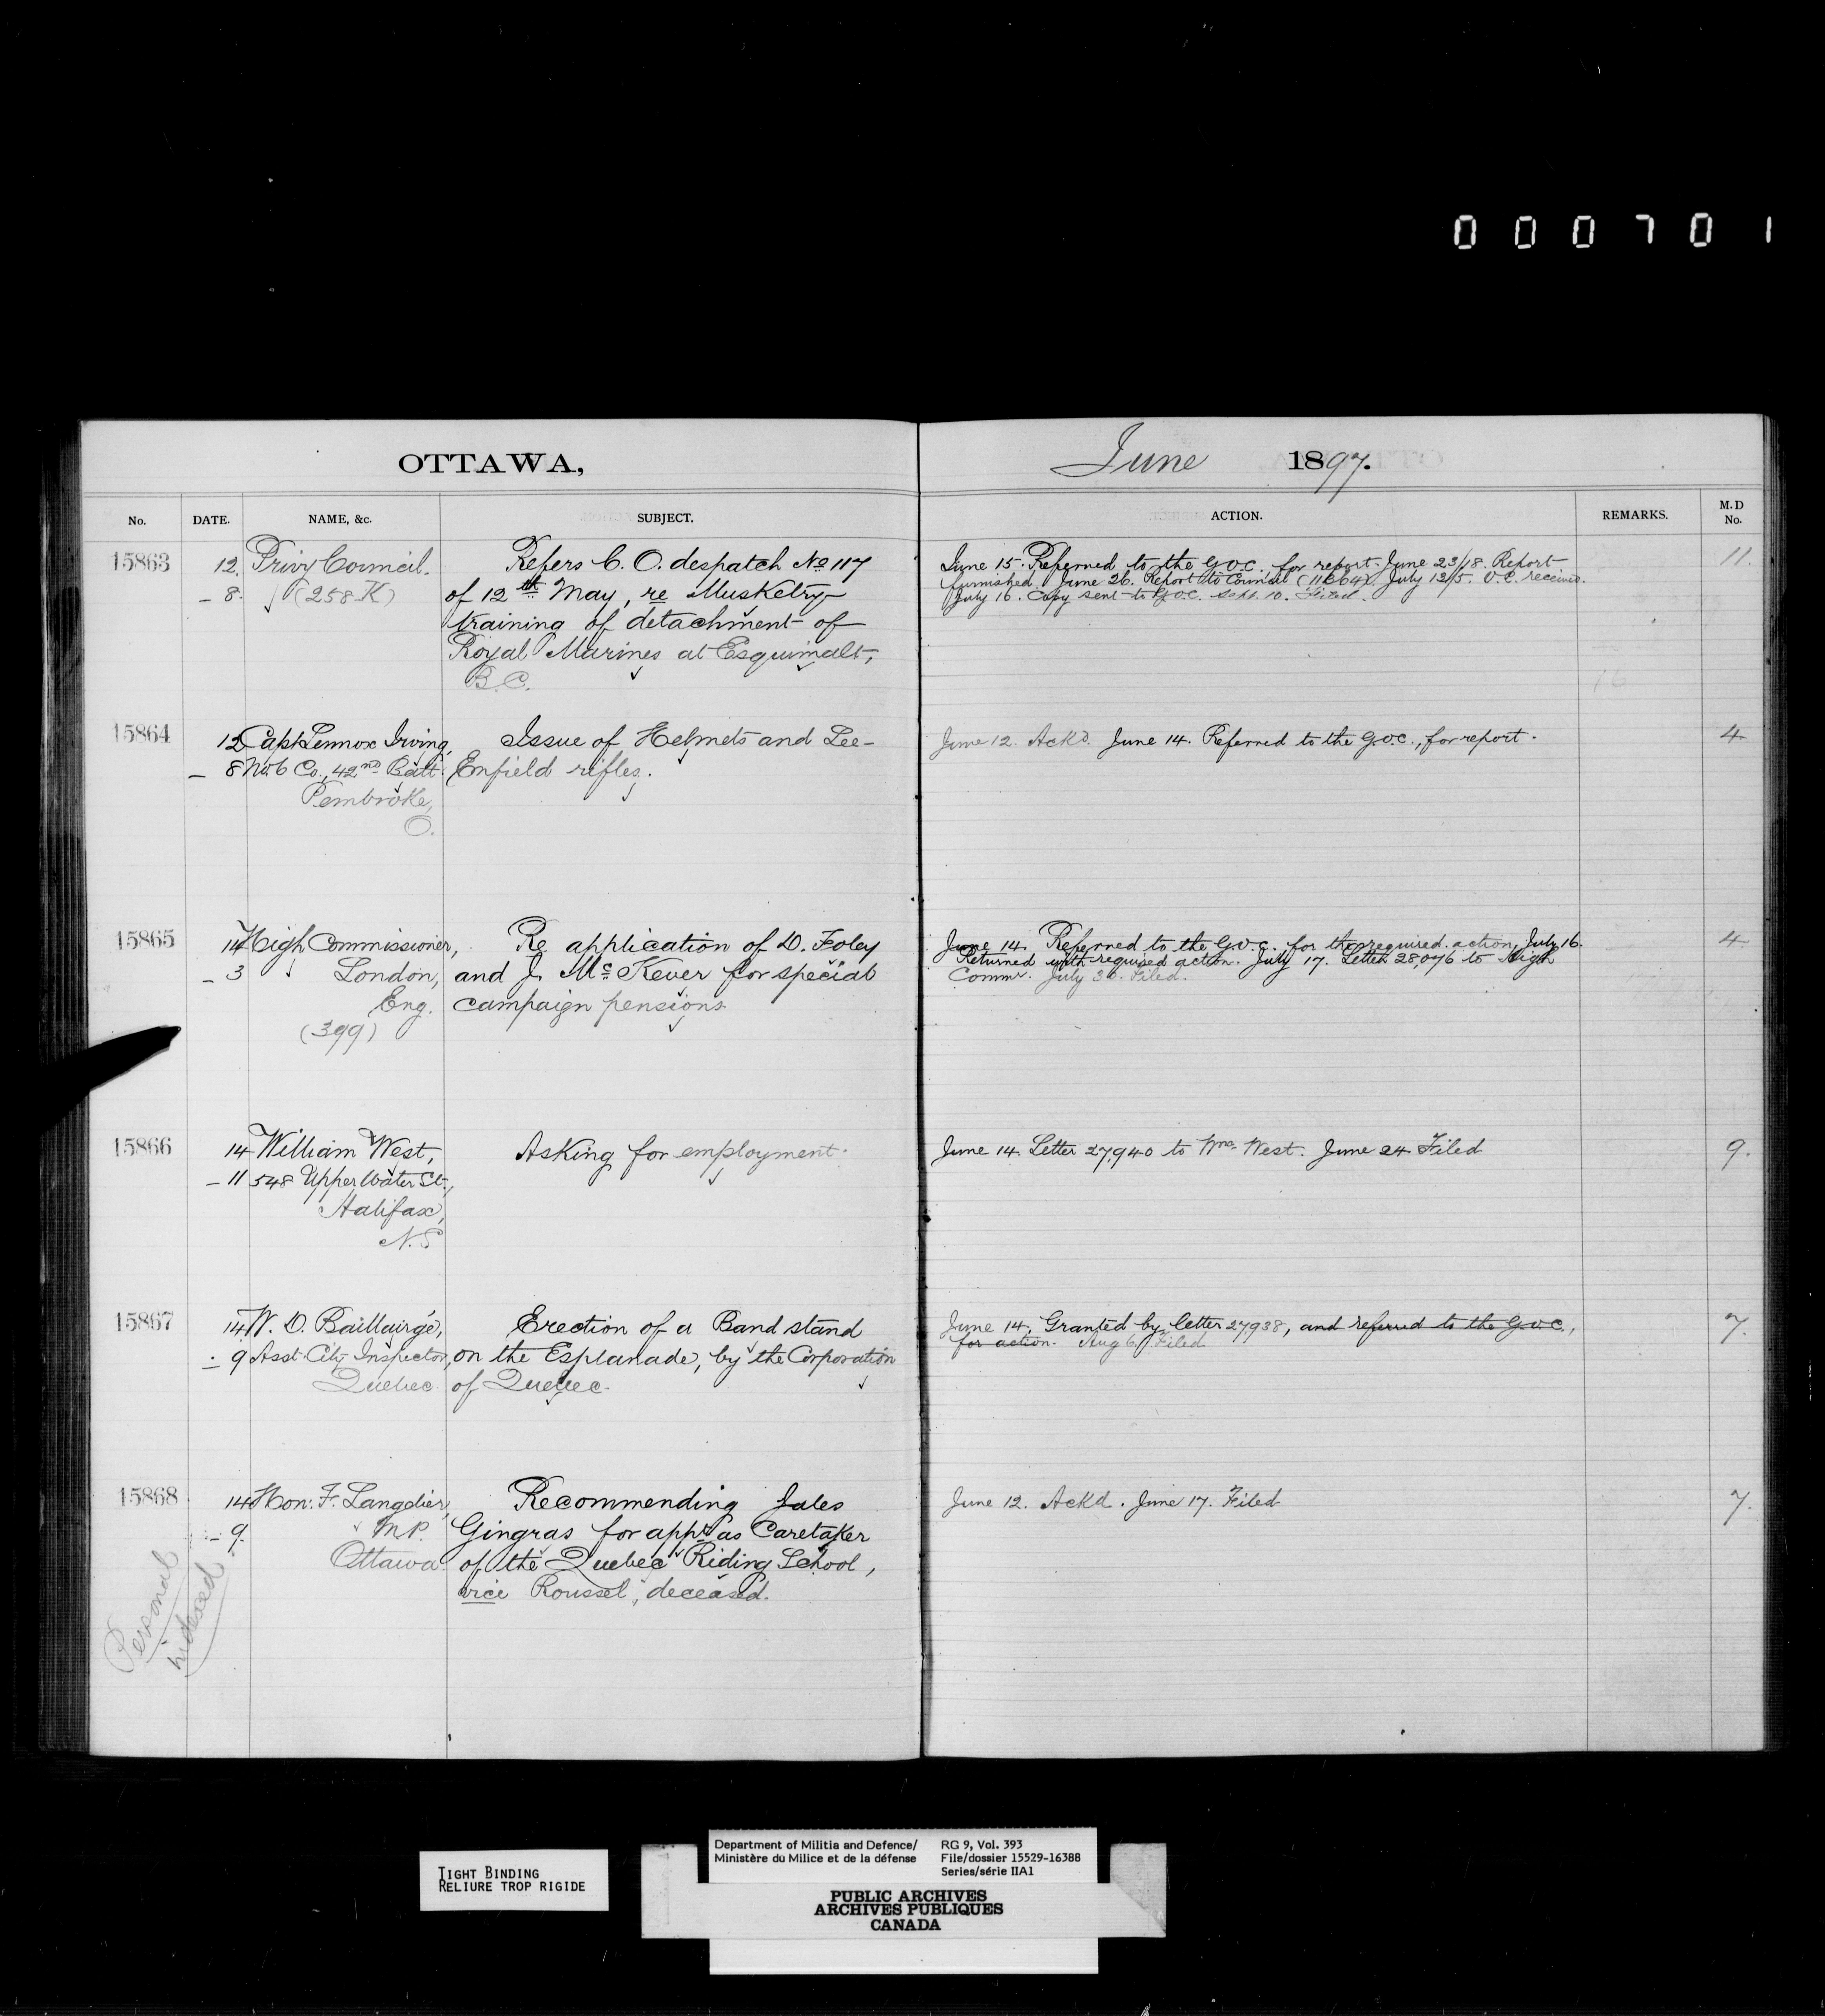 000701
OTTAWA,
June 1897.
No. DATE. NAME, &c. SUBJECT. ACTION. REMARKS. M.D No.
15863
12.
- 8.
Privy Council.
(258 K)
Refers C. O. despatch No 117
of 12th May, re Musketry
training of detachment of
Royal Marines at Esquimalt,
B.C.
June 15. Referred to the G.O.C. for report. June 23/18. Report
furnished. June 26. Report to Council July 12/5. O.C. received.
July 16. Copy sent to G.O.C. Filed.
11.
15864
12
- 8
Capt Lennox Irving,
No 6 Co., 42nd Batt.
Pembroke,
O.
Issue of Helmets and Lee-
Enfield rifles.
June 12. Ackd. June 14. Referred to the G.O.C., for report.
4
15865
14
- 3
High Commissioner,
London,
Eng.
(399)
Re application of D. Foley
and J. Mc Kever for special
campaign pensions.
June 14. Referred to the G.O.C. for the required action. July 16.
Returned with required action. July 17. Letter 28,076 to High
Commr. July 30. Filed.
4
15866
14
- 11
William West,
548 Upper Water St.,
Halifax,
N.S
Asking for employment.
June 14. Letter 27,940 to West. June 24 Filed
9.
15867
14
- 9
W. D. Baillairgé,
Asst. City Inspector,
Quebec
Erection of a Band stand
on the Esplanade, by the Corporation
of Quebec.
June 14. Granted by letter 27,938, and referred to the G.O.C.,
for action. Aug 6. Filed
7.
15868
14
- 9.
Hon. F. Langelier,
M.P.
Ottawa
Recommending Jules
Gingras for appt as Caretaker
of the Quebec Riding School,
vice Roussel, deceased.
June 12. Ackd. June 17. Filed
7.
Personal
indexed
TIGHT BINDING
RELIURE TROP RIGIDE
Department of Militia and Defence/
Ministère du Milice et de la défense
RG 9, Vol. 393
File/dossier 15529-16388
Series/série IIA1
PUBLIC ARCHIVES
ARCHIVES PUBLIQUES
CANADA